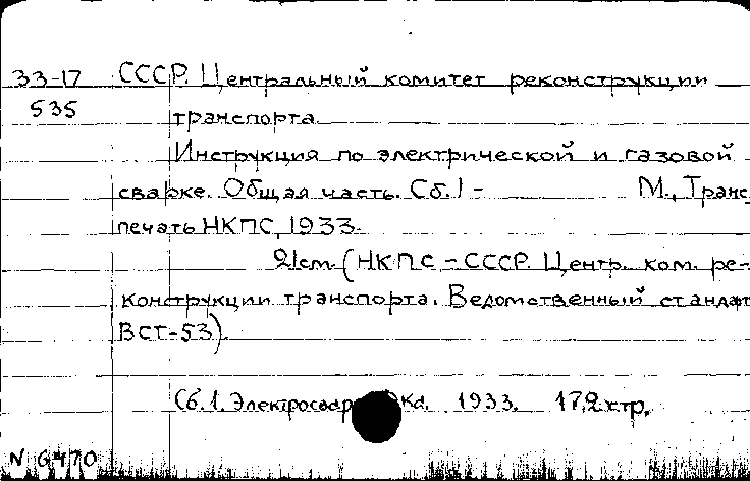 33-17 СССР. Центральный комитет реконструкции
535 транспорта.
Инструкция по электрической и газовой
сварке. Общая часть. Сб. 1 - М., Транс
печать НКПС, 1933.
21 см. (НКПС - СССР. Центр. ком. ре-
конструкции транспорта. Ведомственный стандарт
ВСТ-53).
Сб. 1. Электросвар ка. 1933. 172 стр.
N 6470